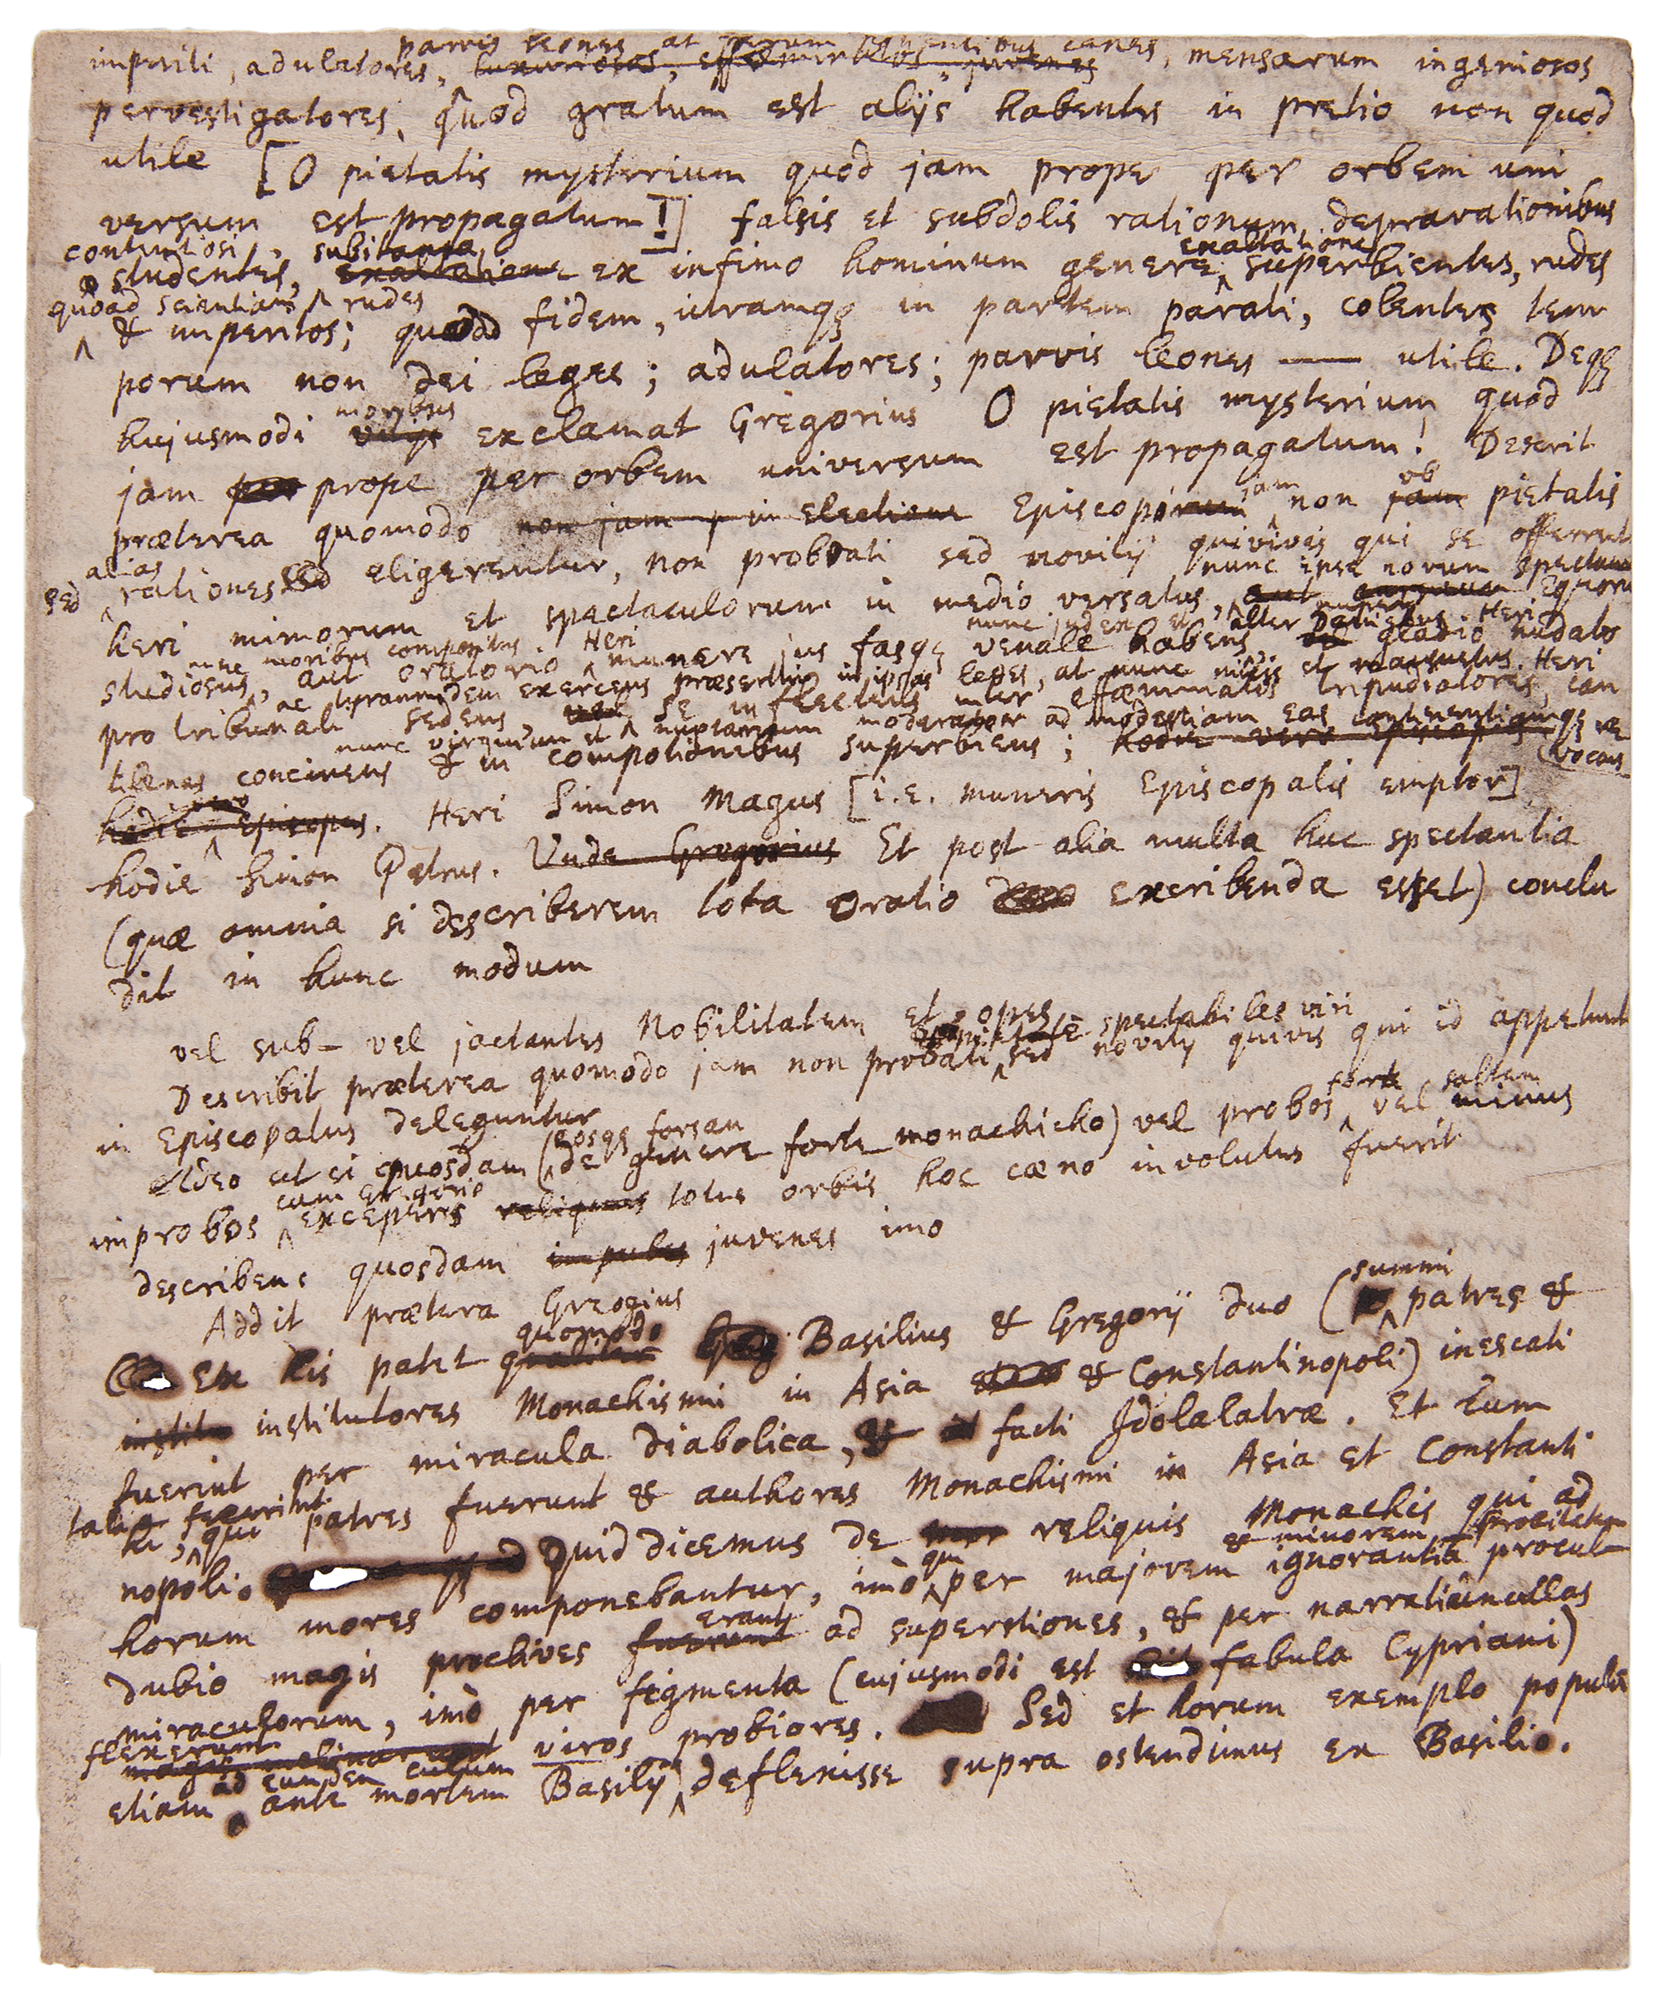 parvis leones at
imperiti, adulatores, canes, mensarum ingeniosos
pervestigatores, quod gratum est alijs habentes in pretio non quod
utile [O pietatis mysterium quod jam prope per orbem uni
versum est propagatum!] falsis et subdolis rationum depravationibus
contentiosi subitanea exaltatione
studentes, exaltatione ex infimo hominum genere superbientes, rudes
quoad scientiam rudes
& imperitos; quoad fidem, utramqꝫ in partem parati, colentes tem
porum non dei leges; adulatores; parvis leones —— utile. Deqꝫ
moribus
hujusmodi vitijs exclamat Gregorius O pietatis mysterium quod
jam per prope per orbem universum est propagatum! Descrit
jam ob
præterea quomodo non jam in electione Episcoporum non jam pietatis
alias
sed rationes sed eligerentur, non probati sed novitij quivivis qui se offerrent
nunc ipse novum spectaculum
heri mimorum et spectaculorum in medio versatus, aut Equorum
nunc moribus compositus. Heri nunc judex et alter Daniel Heri
studiosus, aut oratorio munere jus fasqꝫ venale habens gladio nudato
ac tyrannidem exercens præsertim in ipsas leges, at nunc mitis et mansuetus. Heri
pro tribunali sedens, se inflectens inter effæminatos tripudiatores, can
nunc virginum et nuptarum moderator ad modestiam eas revocans
tilenas concinens & in compotionibus superbiens; hodie vero Episcopus
vero
hodie Episcopus. Heri Simon Magus [i.e. muneris Episcopalis emptor]
hodie Simon Petrus. Unde Gregorius Et post alia multa huc spectantia
(quæ omnia si describerem tota oratio excribenda esset) conclu
dit in hunc modum
vel sub- vel jactantes Nobilitatem et opes
spectabiles viri
Describit præterea quomodo jam non probati sed novitij quivis qui id appetunt
in Episcopatus deleguntur
eosqꝫ forsan forte saltem
Adeo ut si quosdam (de genere forte monachicho) vel probos vel minus
cum Gregorio
improbos exceperis reliquus totus orbis hoc cæno involutus fuerit
describens quosdam impubes juvenes imo
Addit prætera Gregoius
quomodo summi
Ex his patet qualiter Basilius & Gregorij duo (patres &
institu institutores Monachismi in Asia & Constantinopoli) inescati
fuerint per miracula diabolica, & facti Idolalatræ. Et cum
tales fuerint
hi, qui patres fuerunt & authores Monachismi in Asia et Constanti
nopoli. Quid dicemus de reliquis Monachis qui ad
qui & minorem probitatem
horum mores componebantur, imò per majorem ignorantia procul
erant
dubio magis proclives fuerunt ad superstiones, & per narratiunculas
miraculorum, imò per figmenta (cujusmodi est fabula Cypriani)
flexerunt
viros probiores. Sed et horum exemplo populū
ad eundem cultum
etiam ante mortem Basilij deflexisse supra ostendimus ex Basilio.